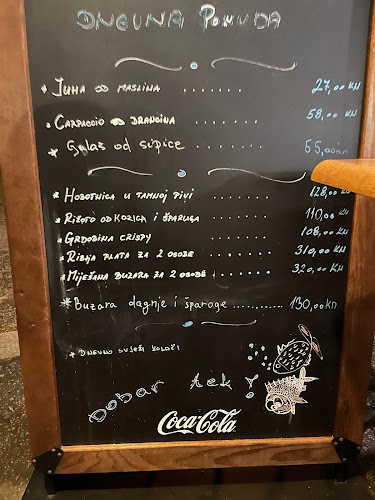 DNEVNA PONUDA
* JUHA OD MASLINA ....... 27,00 KN
* CARPACCIO OD BRANCINA ....... 58,00 KN
* Gulaš od sipice ....... 55,00 KN
* HOBOTNICA U TAMNOJ PIVI ....... 128,00 KN
* RIŽOTO OD KOZICA I ŠPARUGA ....... 110,00 KN
* GRDOBINA CRISPY ....... 108,00 KN
* RIBLJA PLATA ZA 2 OSOBE ....... 310,00 KN
* MIJEŠANA BUZARA ZA 2 OSOBE ....... 320,00 KN
* Buzara dagnje i šparoge ........... 130,00 kn
* DNEVNO SVJEŽI KOLAČI
DOBAR tek!
Coca-Cola